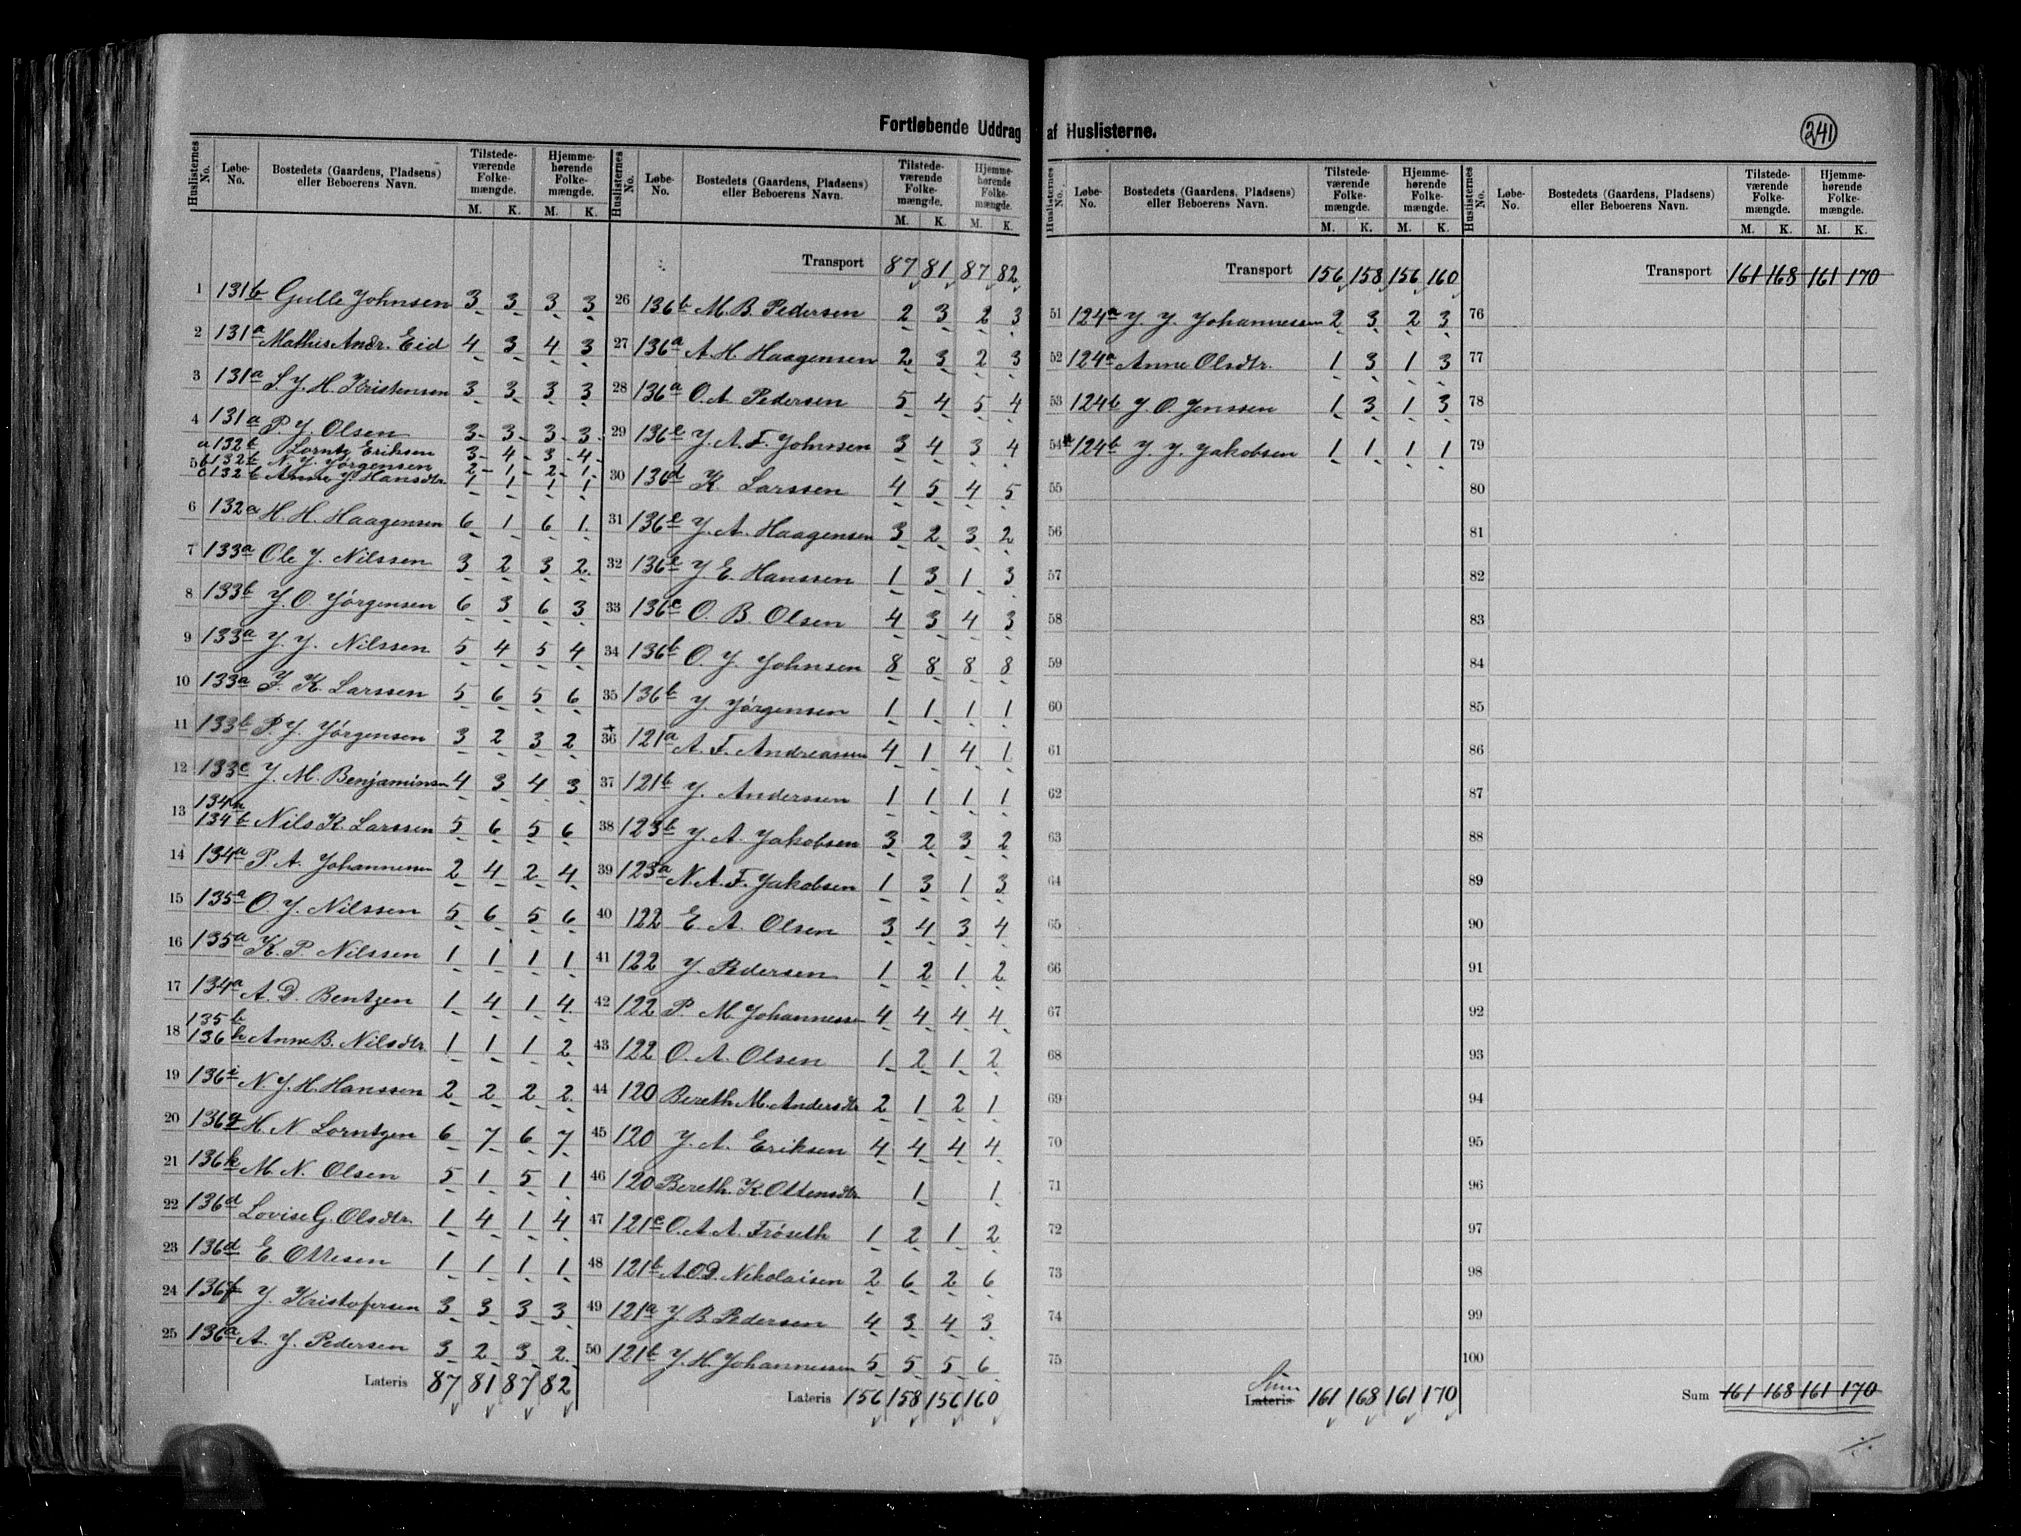 Fortløbende Uddrag af Huslisterne.
241
Huslisternes No. Løbe-No. Bostedets (Gaardens, Pladsens) eller Beboerens Navn. Tilstedeværende Folkemængde. M. K. Hjemmehørende Folkemængde. M. K.
1 131b Gulle Johnsen 3 3 3 3
2 131a Mathis Andr. Eid 4 3 4 3
3 131a L. J. H. Kristensen 3 3 3 3
4 131a P. J. Olsen 3 3 3 3
a 132b Lorntz Eriksen 3 4 3 4
5 b 132b N. J. Jörgensen 2 1 2 1
c 132b Anne J. Hansdtr 1 1 1 1
6 132a H. H. Haagensen 6 1 6 1
7 133a Ole J. Nilssen 3 2 3 2
8 133b J. O. Jörgensen 6 3 6 3
9 133a J. J. Nilssen 5 4 5 4
10 133a J. K. Larssen 5 6 5 6
11 133b P. J. Jörgensen 3 2 3 2
12 133c J. M. Benjaminsen 4 3 4 3
134a
13 134b Nils K. Larssen 5 6 5 6
14 134a P. A. Johannessen 2 4 2 4
15 135a O. J. Nilssen 5 6 5 6
16 135a K. P. Nilssen 1 1 1 1
17 134a A. D. Bentzen 1 4 1 4
135b
18 136h Anne B. Nilsdtr. 1 1 1 2
19 136i N. J. H. Hanssen 2 2 2 2
20 136g H. N. Lorntzen 6 7 6 7
21 136k M. N. Olsen 5 1 5 1
22 136d Lovise G. Olsdtr. 1 4 1 4
23 136d E. Ottesen 1 1 1 1
24 136f J. Kristofersen 3 3 3 3
25 136a A. J. Pedersen 3 2 3 2
Lateris 87 81 87 82
Huslisternes No. Løbe-No. Bostedets (Gaardens, Pladsens) eller Beboerens Navn. Tilstedeværende Folkemængde. M. K. Hjemmehørende Folkemængde. M. K.
Transport 87 81 87 82
26 136b M. B. Pedersen 2 3 2 3
27 136a A. H. Haagensen 2 3 2 3
28 136a O. A. Pedersen 5 4 5 4
29 136e J. A. F. Johnsen 3 4 3 4
30 136d K. Larssen 4 5 4 5
31 136e J. A. Haagensen 3 2 3 2
32 136e J. E. Hanssen 1 3 1 3
33 136c O. B. Olsen 4 3 4 3
34 136b O. J. Johnsen 8 8 8 8
35 136b J. Jörgensen 1 1 1 1
36 121a A. F. Andreassen 4 1 4 1
37 121b J. Anderssen 1 1 1 1
38 123b J. A. Jakobsen 3 2 3 2
39 123a N. A. F. Jakobsen 1 3 1 3
40 122 E. A. Olsen 3 4 3 4
41 122 J. Pedersen 1 2 1 2
42 122 P. M. Johannessen 4 4 4 4
43 122 O. A. Olsen 1 2 1 2
44 120 Bereth M. Andersdtr 2 1 2 1
45 120 J. A. Eriksen 4 4 4 4
46 120 Bereth K. Ottensdtr 1 1
47 121c O. A. A. Fröseth 1 2 1 2
48 121b A. O. D. Nikolaisen 2 6 2 6
49 121a J. B. Pedersen 4 3 4 3
50 121b J. H. Johannessen 5 5 5 6
Lateris 156 158 156 160
Huslisternes No. Løbe-No. Bostedets (Gaardens, Pladsens) eller Beboerens Navn. Tilstedeværende Folkemængde. M. K. Hjemmehørende Folkemængde. M. K.
Transport 156 158 156 160
51 124a J. J. Johannessen 2 3 2 3
52 124a Anne Olsdtr. 1 3 1 3
53 124b J. O. Jenssen 1 3 1 3
54 124b J. J. Jakobsen 1 1 1 1
55
56
57
58
59
60
61
62
63
64
65
66
67
68
69
70
71
72
73
74
75
Sum
Lateris 161 168 161 170
Huslisternes No. Løbe-No. Bostedets (Gaardens, Pladsens) eller Beboerens Navn. Tilstedeværende Folkemængde. M. K. Hjemmehørende Folkemængde. M. K.
Transport 161 168 161 170
76
77
78
79
80
81
82
83
84
85
86
87
88
89
90
91
92
93
94
95
96
97
98
99
100
Sum 161 168 161 170